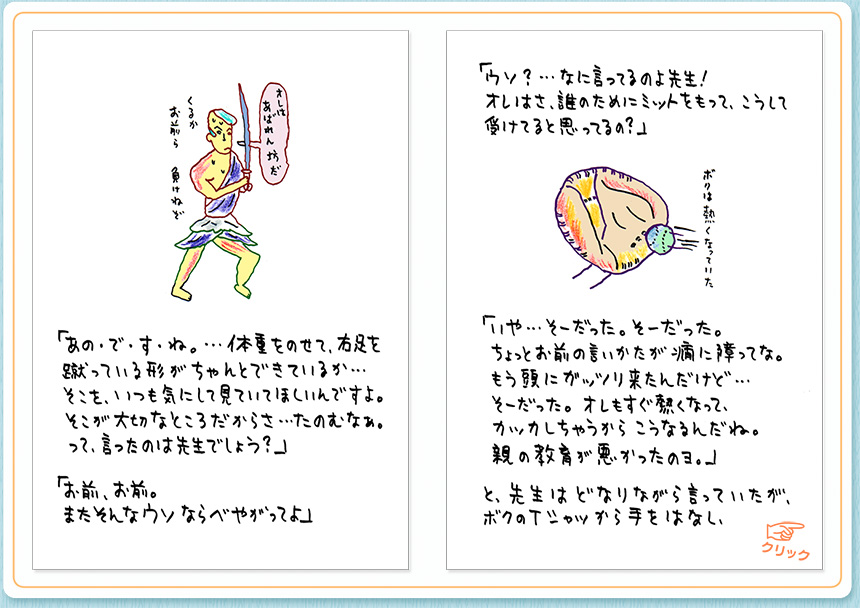 オレは
あばれん坊だ
くるか
お前ら
負けねぞ
「あの・で・す・ね。…体重をのせて、右足を
蹴っている形がちゃんとできているか…
そこを、いつも気にして見ていてほしいんですよ。
そこが大切なところだからさ…たのむなぁ。
って、言ったのは先生でしょう?」
「お前、お前。
またそんなウソならべやがってよ」
「ウソ?…なに言ってるのよ先生!
オレはさ、誰のためにミットをもって、こうして
受けてると思ってるの?」
ボクは熱くなっていた
「いや…そーだった。そーだった。
ちょっとお前の言いかたが癇に障ってな。
もう頭にガッツリ来たんだけど…
そーだった。オレもすぐ熱くなって、
カッカしちゃうからこうなるんだね。
親の教育が悪かったのヨ。」
と、先生はどなりながら言っていたが、
ボクのTシャツから手をはなし、
クリック